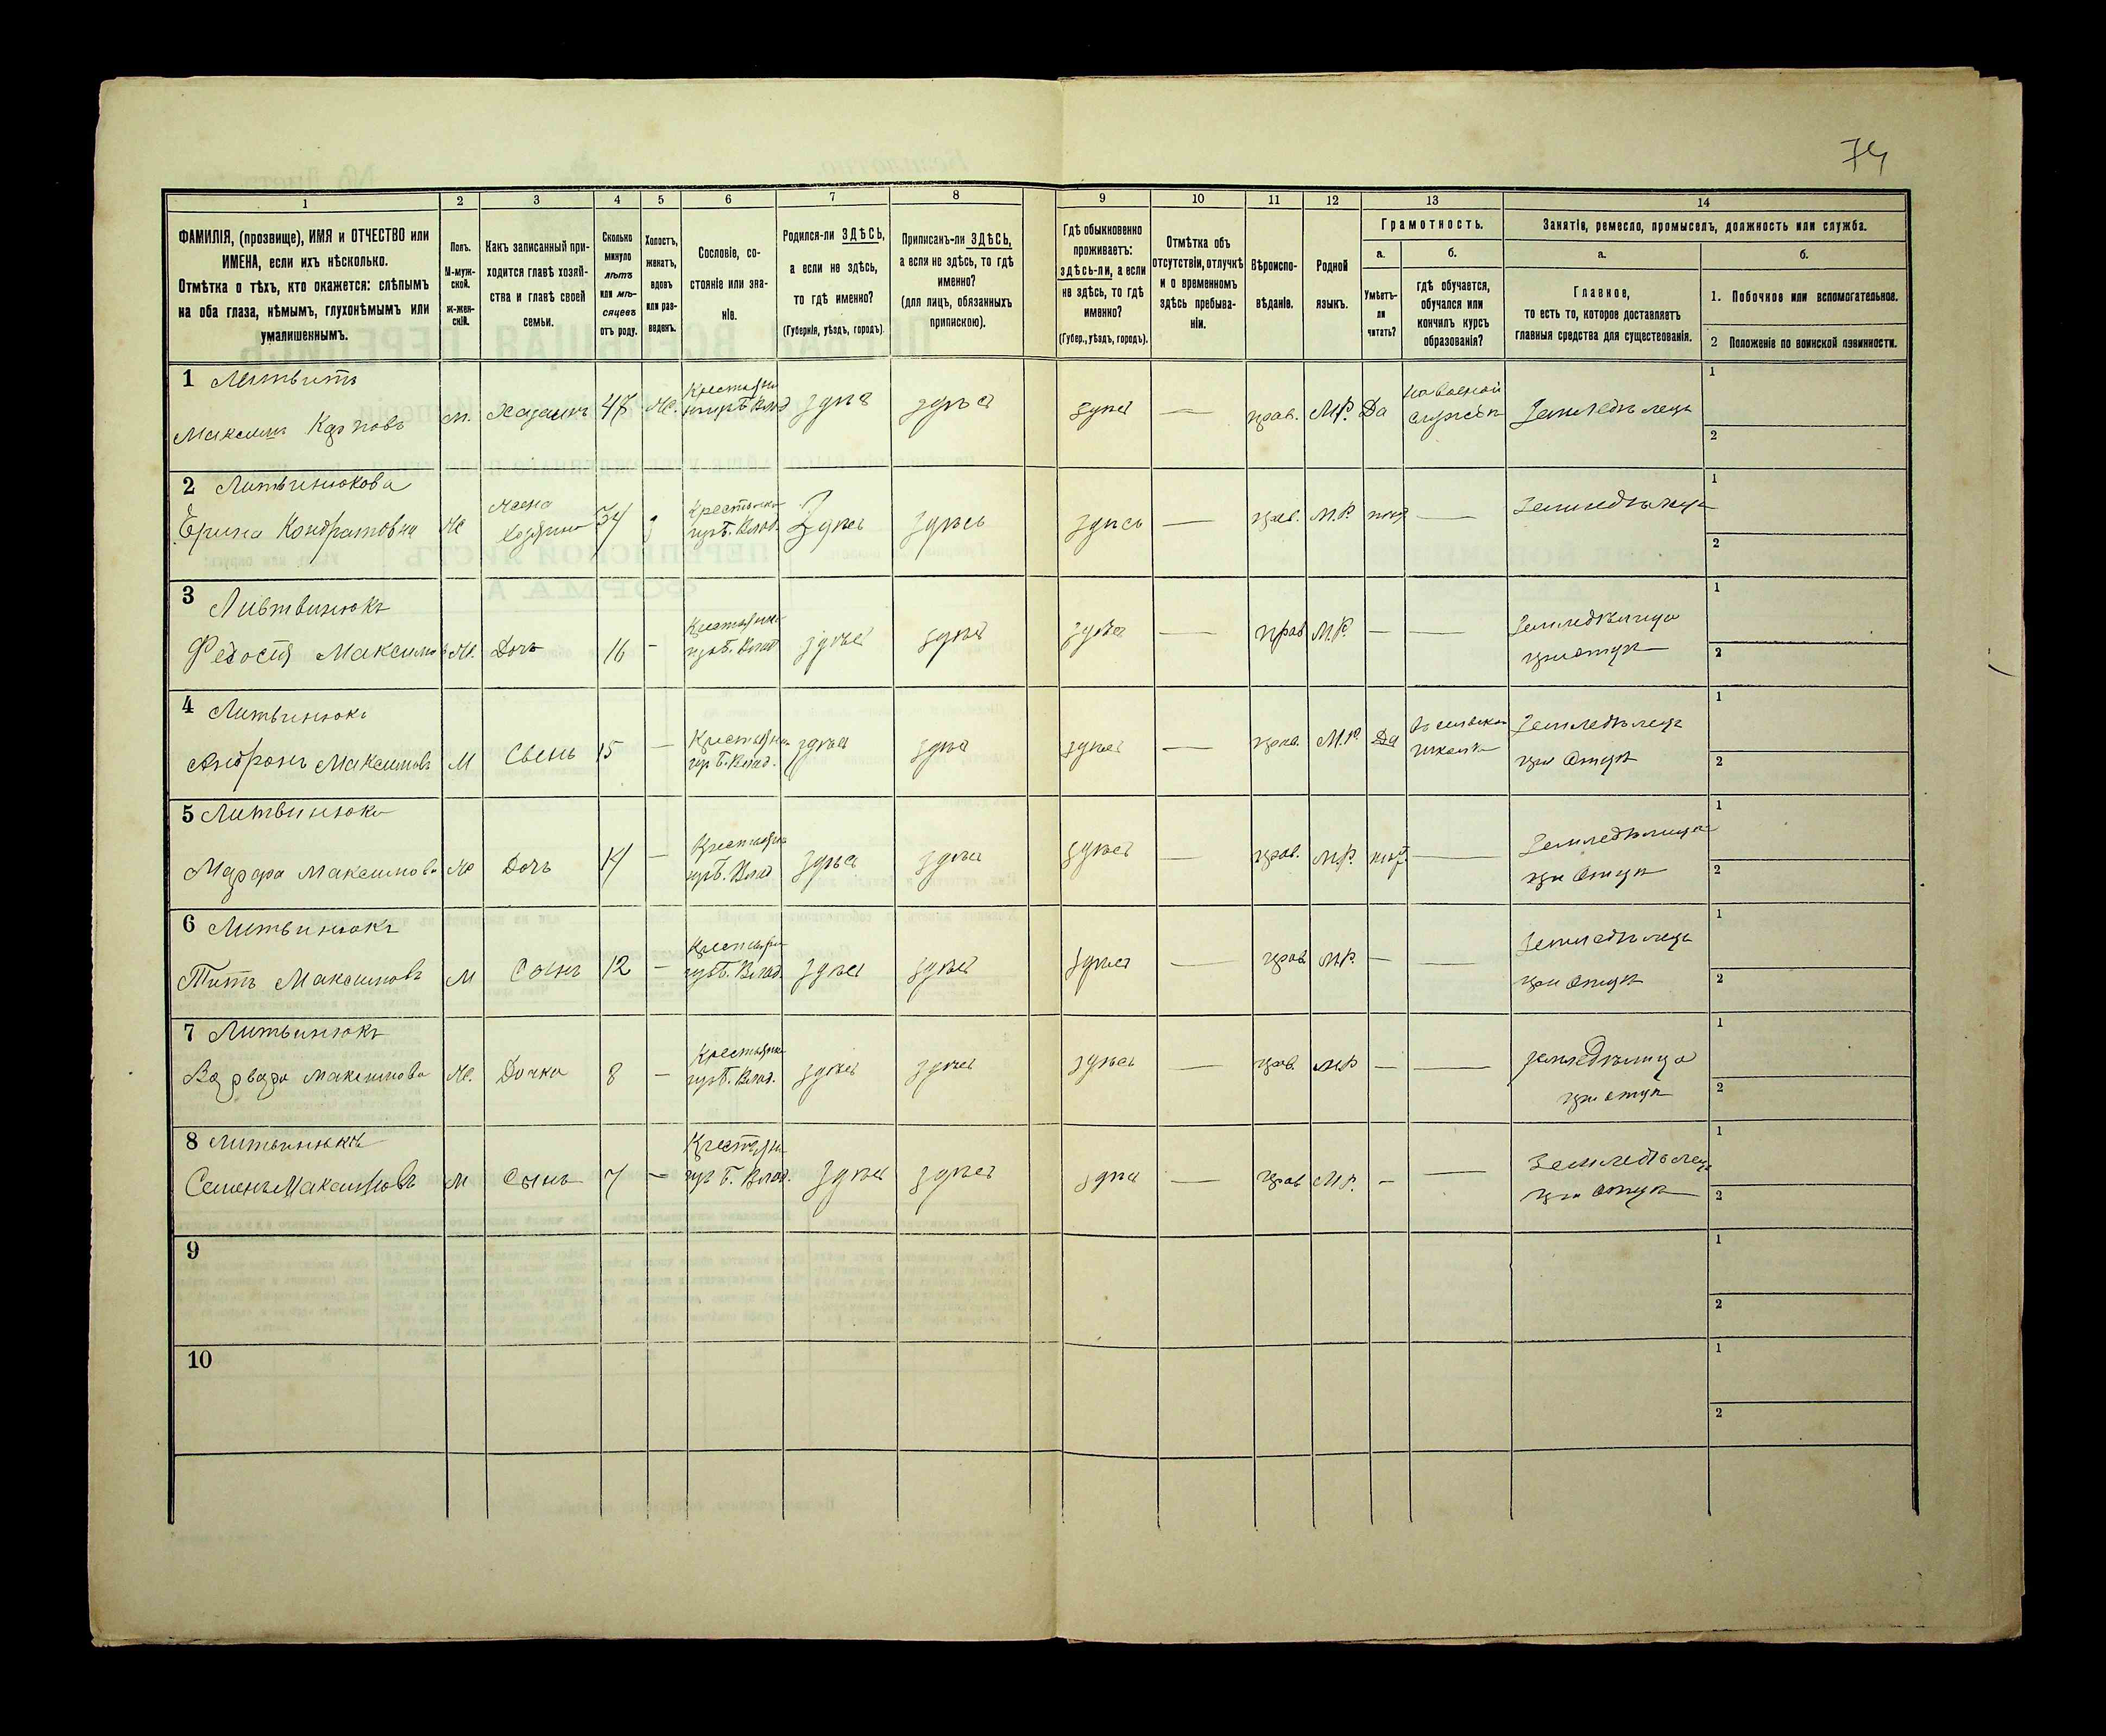 74
1 2 3 4 5 6 7 8 9 10 11 12 13 14
ФАМИЛІЯ, (прозвище), ИМЯ и ОТЧЕСТВО или
ИМЕНА, если ихъ нѣсколько.
Отмѣтка о тѣхъ, кто окажется: слѣпымъ
на оба глаза, нѣмымъ, глухонѣмымъ или
умалишеннымъ.
Полъ.
М-муж-
ской.
Ж-жен-
скій.
Какъ записанный при-
ходится главѣ хозяй-
ства и главѣ своей
семьи.
Сколько
минуло
лѣтъ
или мѣ-
сяцевъ
отъ роду.
Холостъ,
женатъ,
вдовъ
или раз-
веденъ.
Сословіе, со-
стояніе или зва-
ніе.
Родился-ли ЗДѢСЬ,
а если не здѣсь,
то гдѣ именно?
(Губернія, уѣздъ, городъ).
Приписанъ-ли ЗДѢСЬ,
а если не здѣсь, то гдѣ
именно?
(для лицъ, обязанныхъ
припискою).
Гдѣ обыкновенно
проживаетъ:
здѣсь-ли, а если
не здѣсь, то гдѣ
именно?
(Губер., уѣздъ, городъ).
Отмѣтка объ
отсутствіи, отлучкѣ
и о временномъ
здѣсь пребыва-
ніи.
Вѣроиспо-
вѣданіе.
Родной
языкъ.
Грамотность.
а.
Умѣетъ-
ли
читать?
б.
гдѣ обучается,
обучался или
кончилъ курсъ
образованія?
Занятіе, ремесло, промыселъ, должность или служба.
а.
Главное,
то есть то, которое доставляетъ
главныя средства для существованія.
б.
1. Побочное или вспомогательное.
2 Положеніе по воинской повинности.
1 Литвин
Максимъ Карповъ м. Хазаинъ 48 Ж. здѣсь здѣсь здѣсь — прав. М.Р. Да на военой службѣ Земледѣлецъ
1
2
2 Литвинюкова
Ерина Кондратовна Ж Жена 34 здѣсь здѣсь здѣсь — прав. М.Р. — Земледѣлица
1
2
3 Литвинюкъ
Федосія Максимов Ж. Дочь 16 — здѣсь здѣсь здѣсь — прав М.Р. — — Земледѣлица
при отцѣ
1
2
4 Литвинюкъ
Андронъ Максимовъ М Свень 15 — здѣсь здѣсь здѣсь — прав. М.Р. Да въ сельской школѣ Земледѣлецъ
при Отцѣ
1
2
5 Литвинюкъ
Максимова Ж Дочь 14 — здѣсь здѣсь здѣсь — прав. М.Р. — Земледѣлица
при Отцѣ
1
2
6 Литвинюкъ
Титъ Максимовъ М Сынъ 12 — здѣсь здѣсь здѣсь — прав М.Р. — — Земледѣлецъ
при Отцѣ
1
2
7 Литвинюкъ
Варвара Максимова Ж. Дочка 8 — здѣсь здѣсь здѣсь — прав. М.Р — — земледѣлица
при отцѣ
1
2
8 Литвинюкъ
Семенъ Максимовъ М Сынъ 7 — здѣсь здѣсь здѣсь — прав М.Р. — — Земледѣлецъ
при Отцѣ
1
2
9
1
2
10
1
2